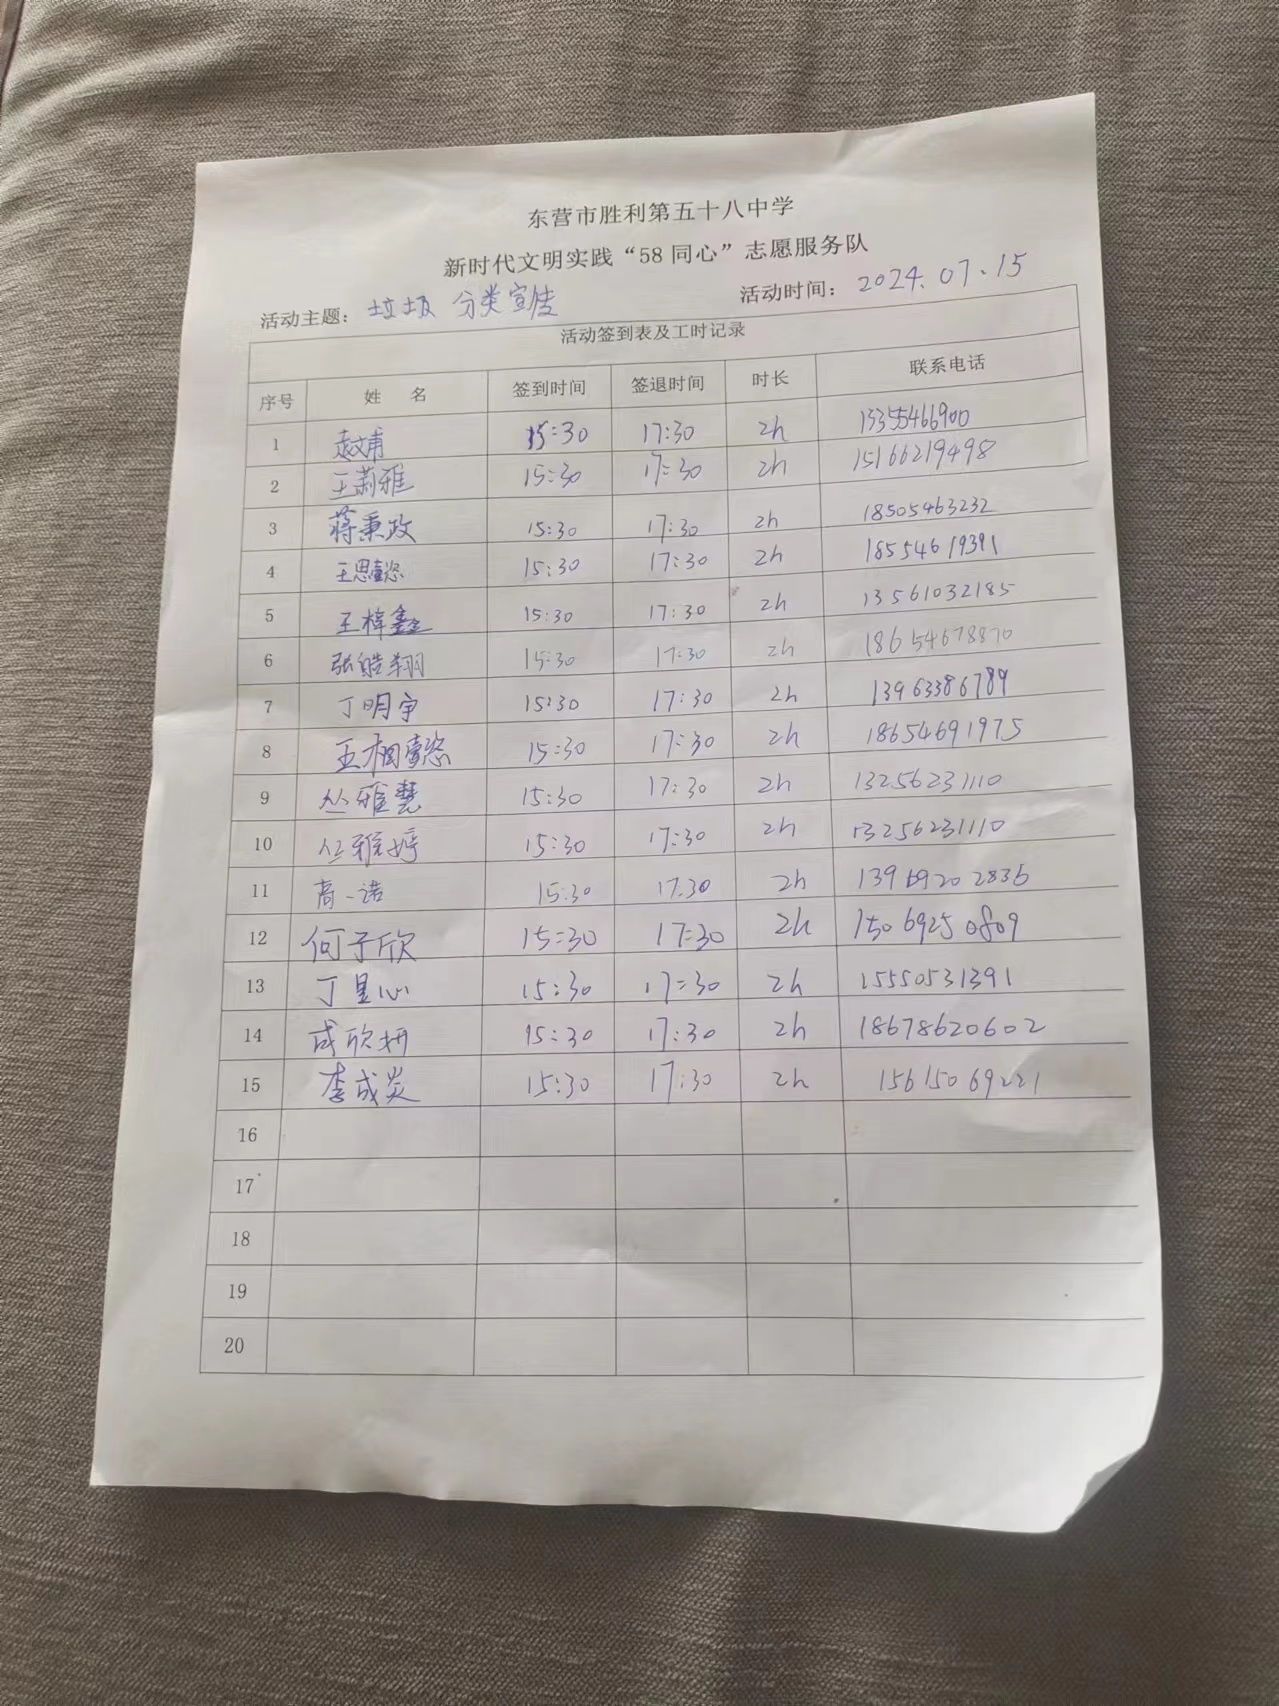 东营市胜利第五十八中学
新时代文明实践“58同心”志愿服务队
活动主题：垃圾 分类宣传 活动时间：2024.07.15
活动签到表及工时记录
序号 姓 名 签到时间 签退时间 时长 联系电话
1 15:30 17:30 2h 13355466900
2 王萧雅 15:30 17:30 2h 15166219498
3 蒋秉政 15:30 17:30 2h 18505463232
4 王思懿 15:30 17:30 2h 18554619391
5 王梓鑫 15:30 17:30 2h 13561032185
6 张皓翔 15:30 17:30 2h 18654678870
7 丁明宇 15:30 17:30 2h 13963386789
8 王相懿 15:30 17:30 2h 18654691975
9 丛雅慧 15:30 17:30 2h 13256231110
10 丛雅婷 15:30 17:30 2h 13256231110
11 高一诺 15:30 17:30 2h 13969202836
12 何子欣 15:30 17:30 2h 15069250809
13 丁星心 15:30 17:30 2h 15550531391
14 成欣妍 15:30 17:30 2h 18678620602
15 李成炎 15:30 17:30 2h 15615069221
16
17
18
19
20